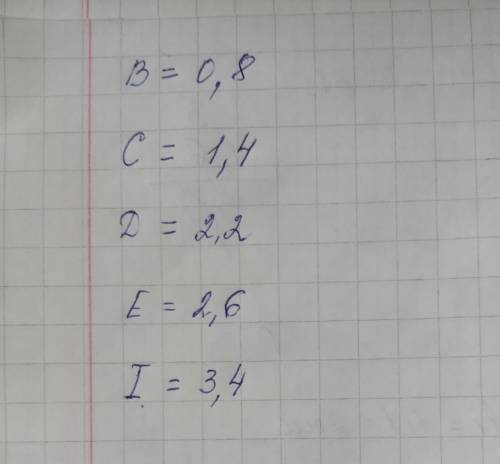 B = 0,8
C = 1,4
D = 2,2
E = 2,6
I = 3,4